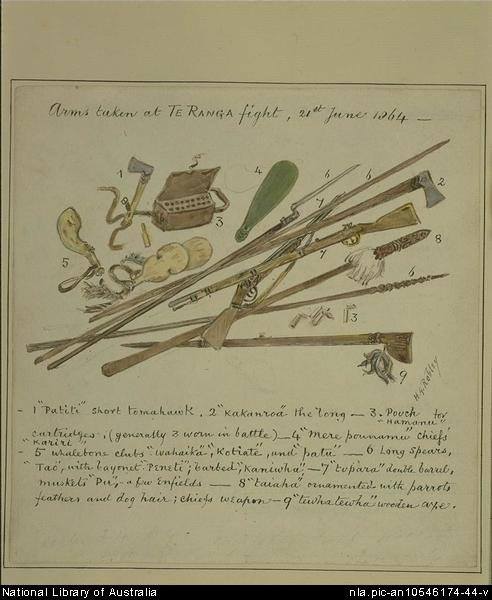 Arms taken at TE RANGA fight, 21st June 1864 —
1
2
3
4
5
6
6
6
7
7
8
3
9
H.G. Robley
- 1 "Patiti" short tomahawk. 2 "Kakauroa" the long — 3. Pouch for
"Hamanu"
cartridges. (generally 3 worn in battle) — 4 "Mere pounamu" chiefs
"Kariri"
- 5 whalebone clubs "wahaika", "Kotiate", and "patu" — 6 Long spears,
"Tao", with bayonet "Peneti"; barbed; "Kaniwha", — 7 "tupara" double barrel,
muskets "Pu", a few Enfields — 8 "taiaha" ornamented with parrots
feathers and dog hair; chiefs weapon — 9 "tewhatewha" wooden axe.
National Library of Australia
nla.pic-an10546174-44-v